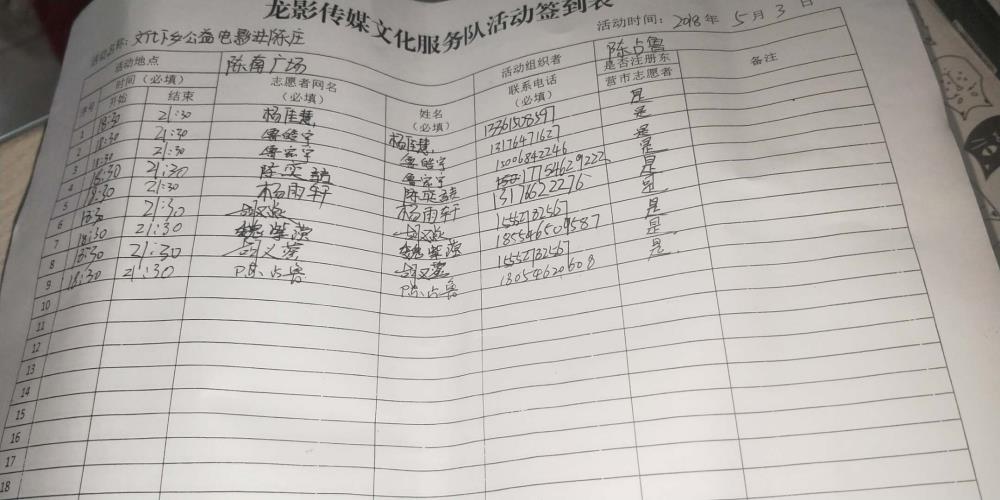 龙影传媒文化服务队活动签到表
活动名称：文化下乡公益电影进陈庄 活动时间：2018年5月3日
活动地点 陈南广场 活动组织者 陈占鲁
序号 时间（必填） 开始 结束 志愿者网名（必填） 姓名（必填） 联系电话（必填） 是否注册东营市志愿者 备注
1 18:30 21:30 杨佳慧 杨佳慧 是
2 18:30 21:30 13176471627 是
3 18:30 21:30 15006842246 是
4 18:30 21:30 陈奕 陈奕 17754629222 是
5 18:30 21:30 杨雨轩 杨雨轩 13176622276 是
6 21:30 15552732567 是
7 18:30 21:30 185546509587 是
8 18:30 21:30 胡义 胡义 15552732567 是
9 18:30 21:30 陈占鲁 陈占鲁 18054620608 是
10
11
12
13
14
15
16
17
18